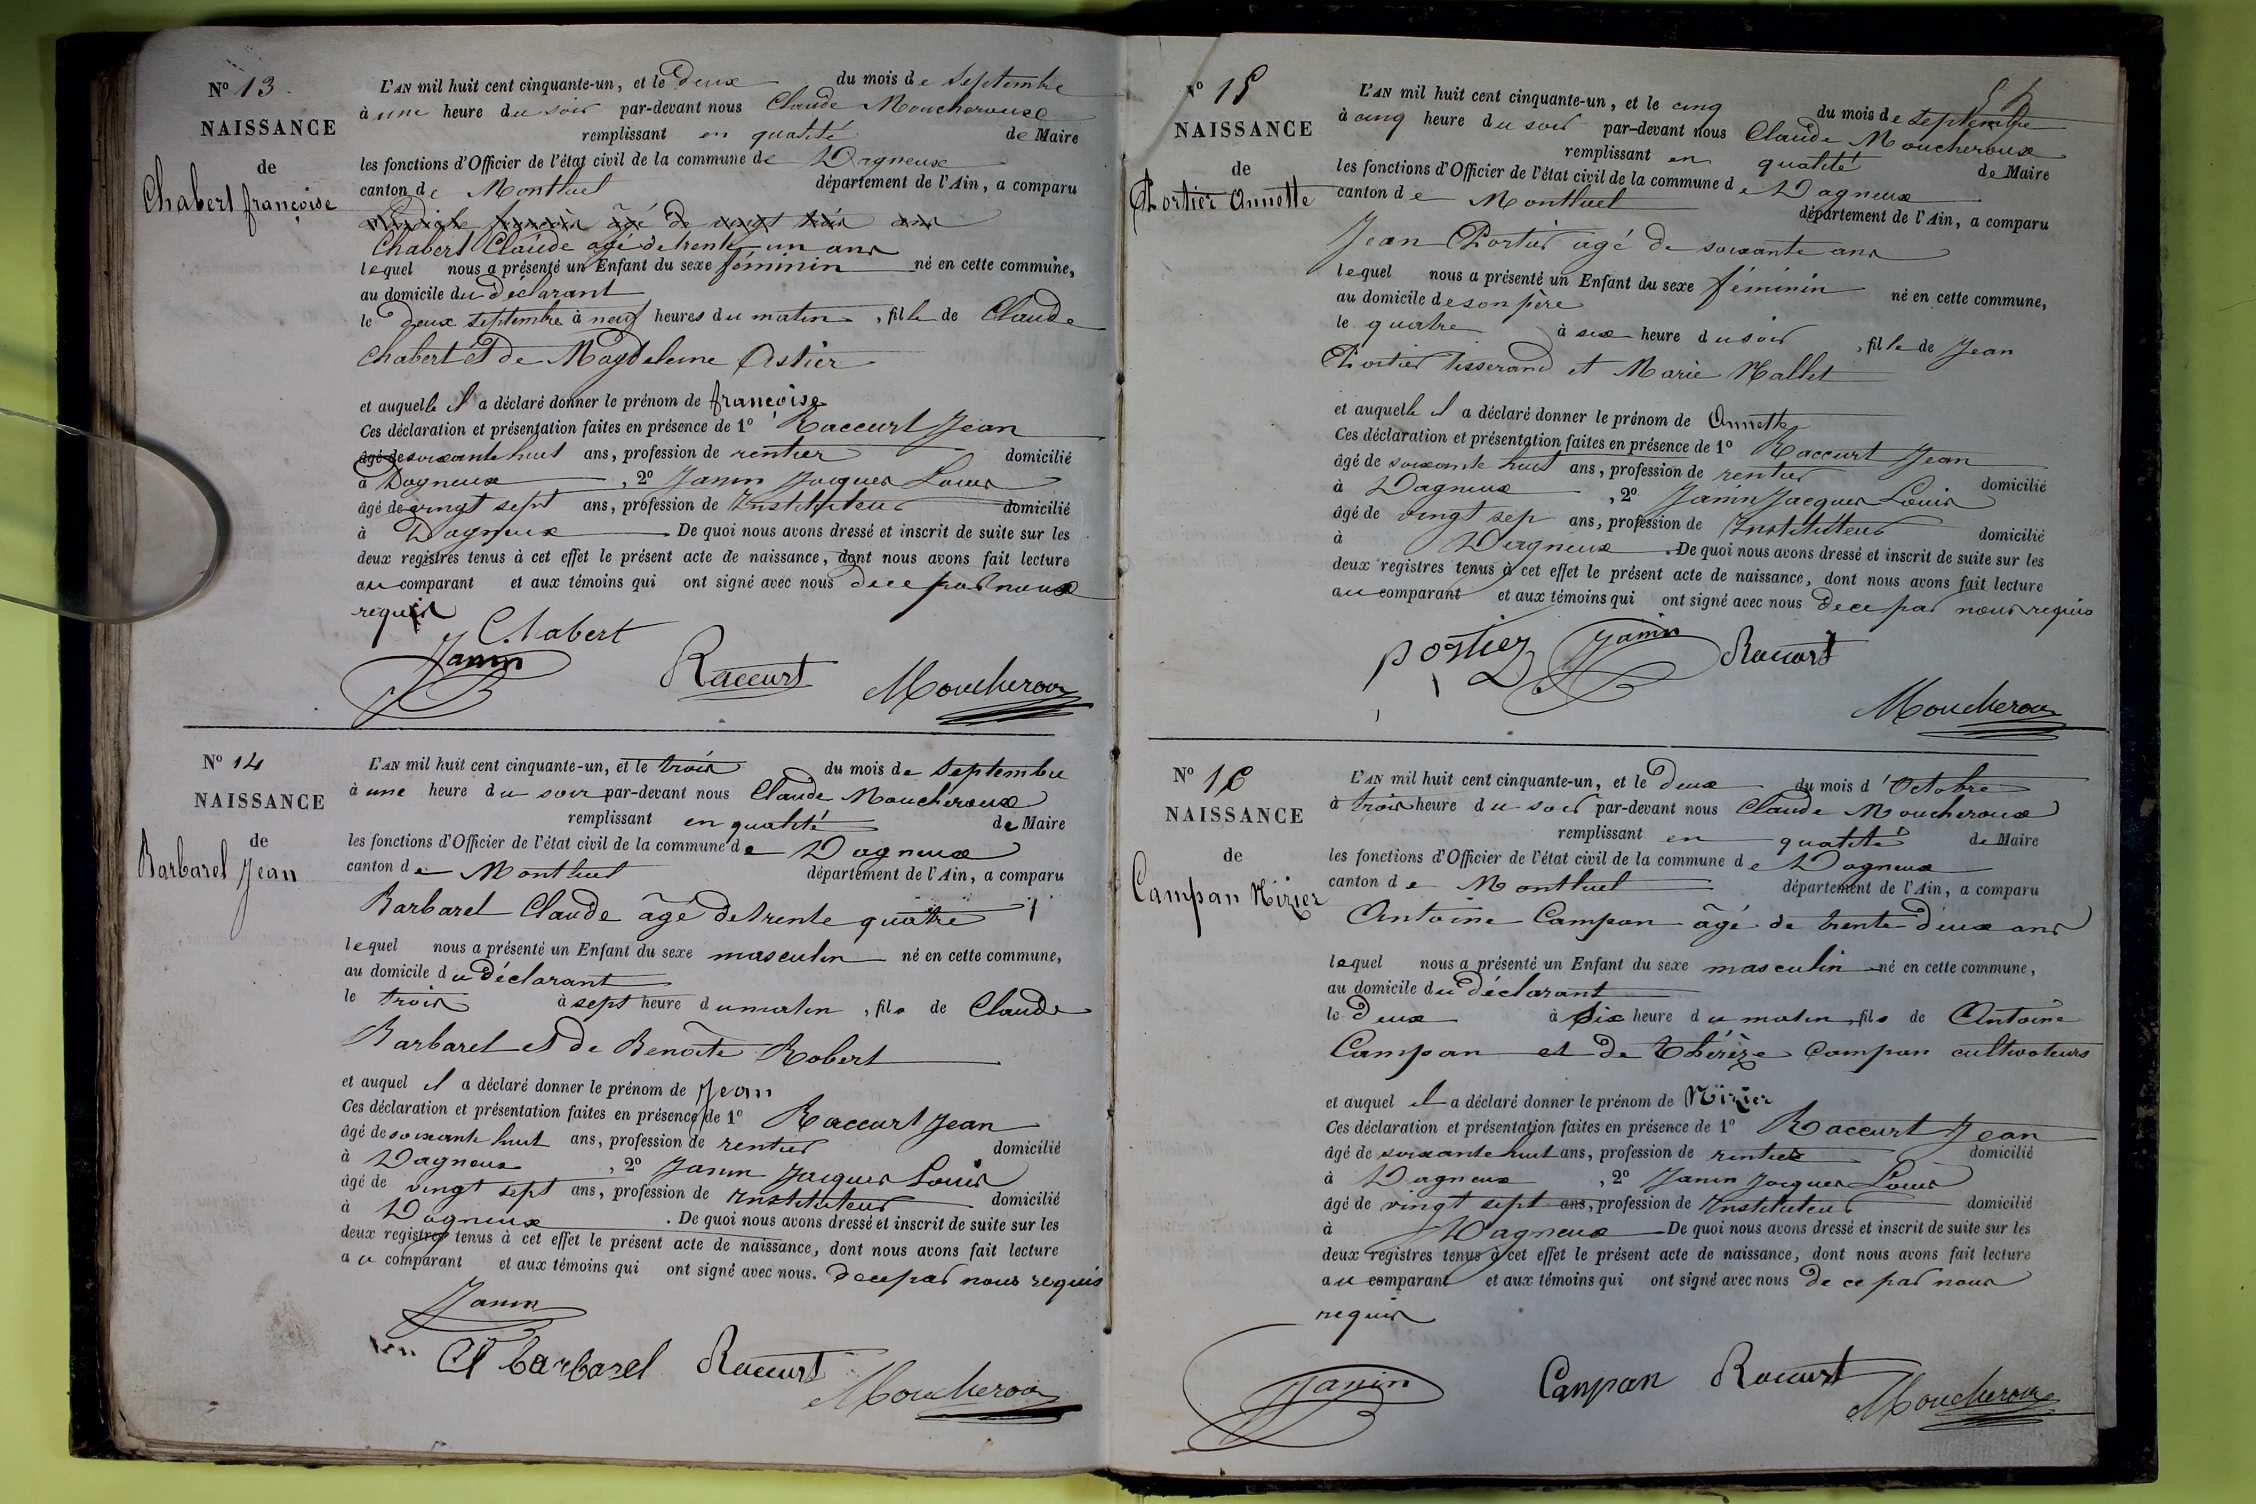 N° 13
NAISSANCE
de
Chabert françoise
L'AN mil huit cent cinquante-un, et le deux du mois de Septembre
à une heure du soir par-devant nous Claude Moucheroux
remplissant en qualité de Maire
les fonctions d'Officier de l'état civil de la commune de Dagneux
canton de Montluel département de l'Ain, a comparu
françois âgé de vingt trois ans
Chabert Claude agé de trente-un ans
lequel nous a présenté un Enfant du sexe féminin né en cette commune,
au domicile du déclarant
le deux septembre à neuf heures du matin, fille de Claude
Chabert et de Magdeleine Astier
et auquelle il a déclaré donner le prénom de françoise
Ces déclaration et présentation faites en présence de 1° Raccurt Jean
âgé de soixante huit ans, profession de rentier domicilié
à Dagneux, 2° Janin Jacques Louis
âgé de vingt sept ans, profession de Instituteur domicilié
à Dagneux De quoi nous avons dressé et inscrit de suite sur les
deux registres tenus à cet effet le présent acte de naissance, dont nous avons fait lecture
au comparant et aux témoins qui ont signé avec nous de ce par nous
requis
Chabert
Janin Raccurt Moucheroux
N° 14
NAISSANCE
de
Barbarel Jean
L'AN mil huit cent cinquante-un, et le trois du mois de Septembre
à une heure du soir par-devant nous Claude Moucheroux
remplissant en qualité de Maire
les fonctions d'Officier de l'état civil de la commune de Dagneux
canton de Montluel département de l'Ain, a comparu
Barbarel Claude âgé de trente quatre
lequel nous a présenté un Enfant du sexe masculin né en cette commune,
au domicile du déclarant
le trois à sept heure du matin, fils de Claude
Barbarel et de Benoîte Robert
et auquel il a déclaré donner le prénom de Jean
Ces déclaration et présentation faites en présence de 1° Raccurt Jean
âgé de soixante huit ans, profession de rentier domicilié
à Dagneux, 2° Janin Jacques Louis
âgé de vingt sept ans, profession de Instituteur domicilié
à Dagneux. De quoi nous avons dressé et inscrit de suite sur les
deux registres tenus à cet effet le présent acte de naissance, dont nous avons fait lecture
au comparant et aux témoins qui ont signé avec nous. de ce par nous requis
Janin
barbarel Raccurt Moucheroux
N° 15
NAISSANCE
de
Portier Annette
L'AN mil huit cent cinquante-un, et le cinq du mois de septembre
à cinq heure du soir par-devant nous Claude Moucheroux
remplissant en qualité de Maire
les fonctions d'Officier de l'état civil de la commune de Dagneux
canton de Montluel département de l'Ain, a comparu
Jean Portier agé de soixante ans
lequel nous a présenté un Enfant du sexe féminin né en cette commune,
au domicile de son père
le quatre à six heure du soir, fille de Jean
Portier tisserand et Marie Mallet
et auquelle il a déclaré donner le prénom de Annette
Ces déclaration et présentation faites en présence de 1° Raccurt Jean
âgé de soixante huit ans, profession de rentier domicilié
à Dagneux, 2° Janin Jacques Louis
âgé de vingt sep ans, profession de Instituteur domicilié
à Dagneux. De quoi nous avons dressé et inscrit de suite sur les
deux registres tenus à cet effet le présent acte de naissance, dont nous avons fait lecture
au comparant et aux témoins qui ont signé avec nous de ce par nous requis
portiez Janin Raccurt
Moucheroux
N° 16
NAISSANCE
de
Campan Nizier
L'AN mil huit cent cinquante-un, et le deux du mois d'Octobre
à trois heure du soir par-devant nous Claude Moucheroux
remplissant en qualité de Maire
les fonctions d'Officier de l'état civil de la commune de Dagneux
canton de Montluel département de l'Ain, a comparu
Antoine Campan âgé de trente-deux ans
lequel nous a présenté un Enfant du sexe masculin né en cette commune,
au domicile du déclarant
le deux à six heure du matin, fils de Antoine
Campan et de Thérèze Campan cultivateurs
et auquel il a déclaré donner le prénom de Nizier
Ces déclaration et présentation faites en présence de 1° Raccurt Jean
âgé de soixante huit ans, profession de rentier domicilié
à Dagneux, 2° Janin Jacques Louis
âgé de vingt sept ans, profession de Instituteur domicilié
à Dagneux De quoi nous avons dressé et inscrit de suite sur les
deux registres tenus à cet effet le présent acte de naissance, dont nous avons fait lecture
au comparant et aux témoins qui ont signé avec nous de ce par nous
requis
Janin Canpan Raccurt Moucheroux